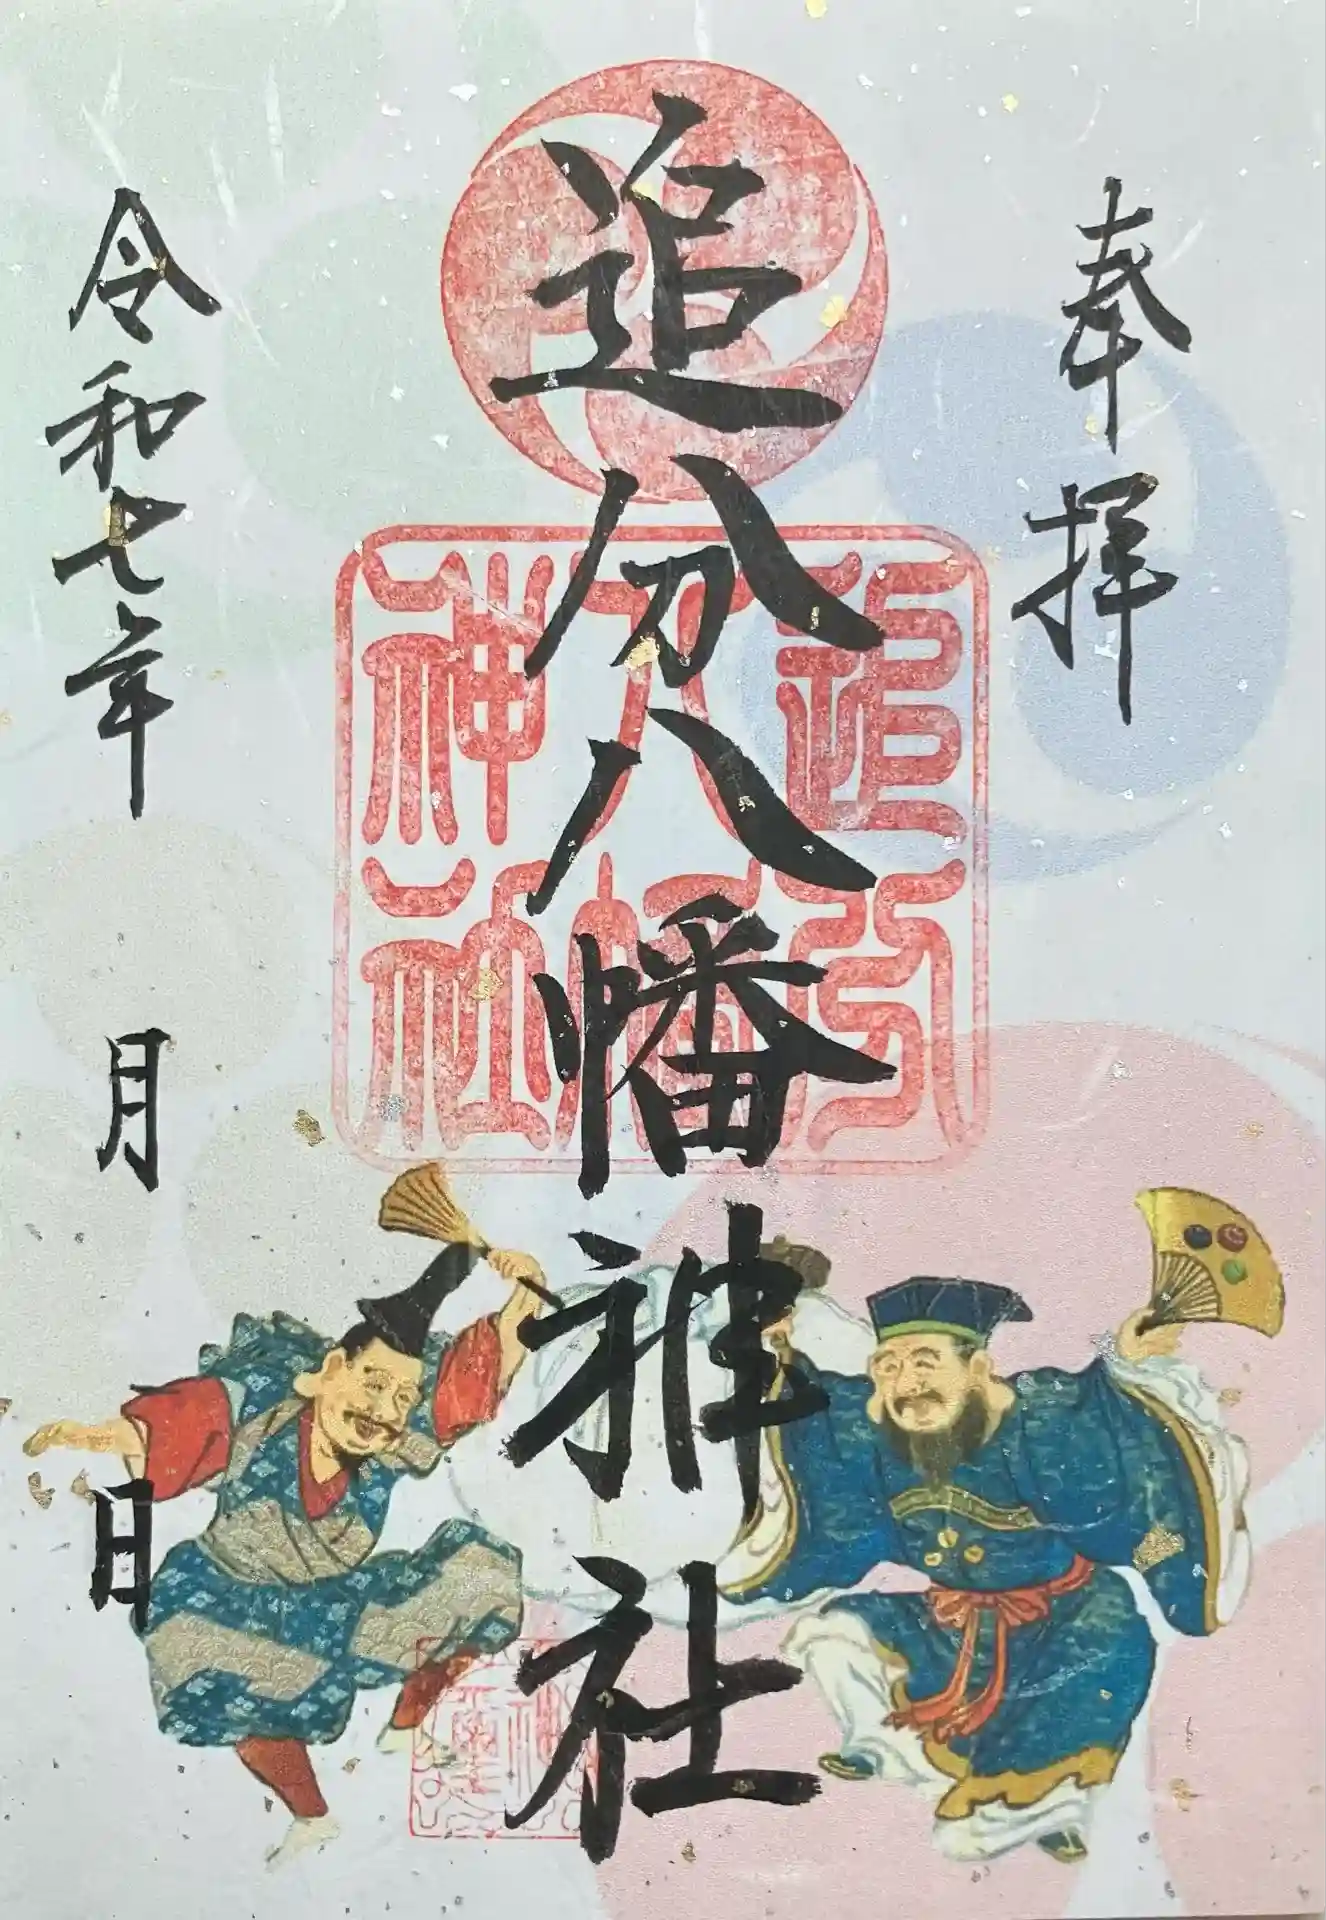 奉拝
追分八幡神社
追分八幡神社
令和七年 月 日